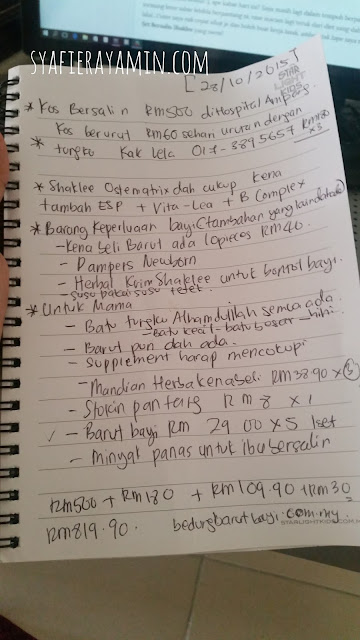 SYAFIERAYAMIN.COM
[28/10/2015]
STAR
LIGHT
KIDS
* Kos Bersalin RM500 diHospital Ampg.
Kos berurut RM60 sehari ururan dengan
* tungku Kak Lela 017-3895657 RM180
x3
* Shaklee Ostematrix dah cukup kena
tambah ESP + Vita-Lea + B Complex
* Barang Keperluaan bayi (tambahan yang lain dah ada)
- Kena beli Barut ada 10pieces RM40.
- Dampers Newborn
- Herbal Krim Shaklee untuk bontol bayi.
- susu pakai susu tetek.
* Untuk Mama
- Batu tungku Alhamdulilah semua ada.
- Batu kecil - batu besar - hihi
- Barut pun dah ada.
- Supplement harap mencukupi
- Mandian Herba kena beli RM38.90 x 3
- Stokin pantang RM8 x 1
✓ - Barut bayi RM 29.00 x 5 1set
- Minyak panas untuk ibu bersalin
RM500 + RM180 + RM109.90 + RM30
RM819.90. bedungbarutbayi.com.my